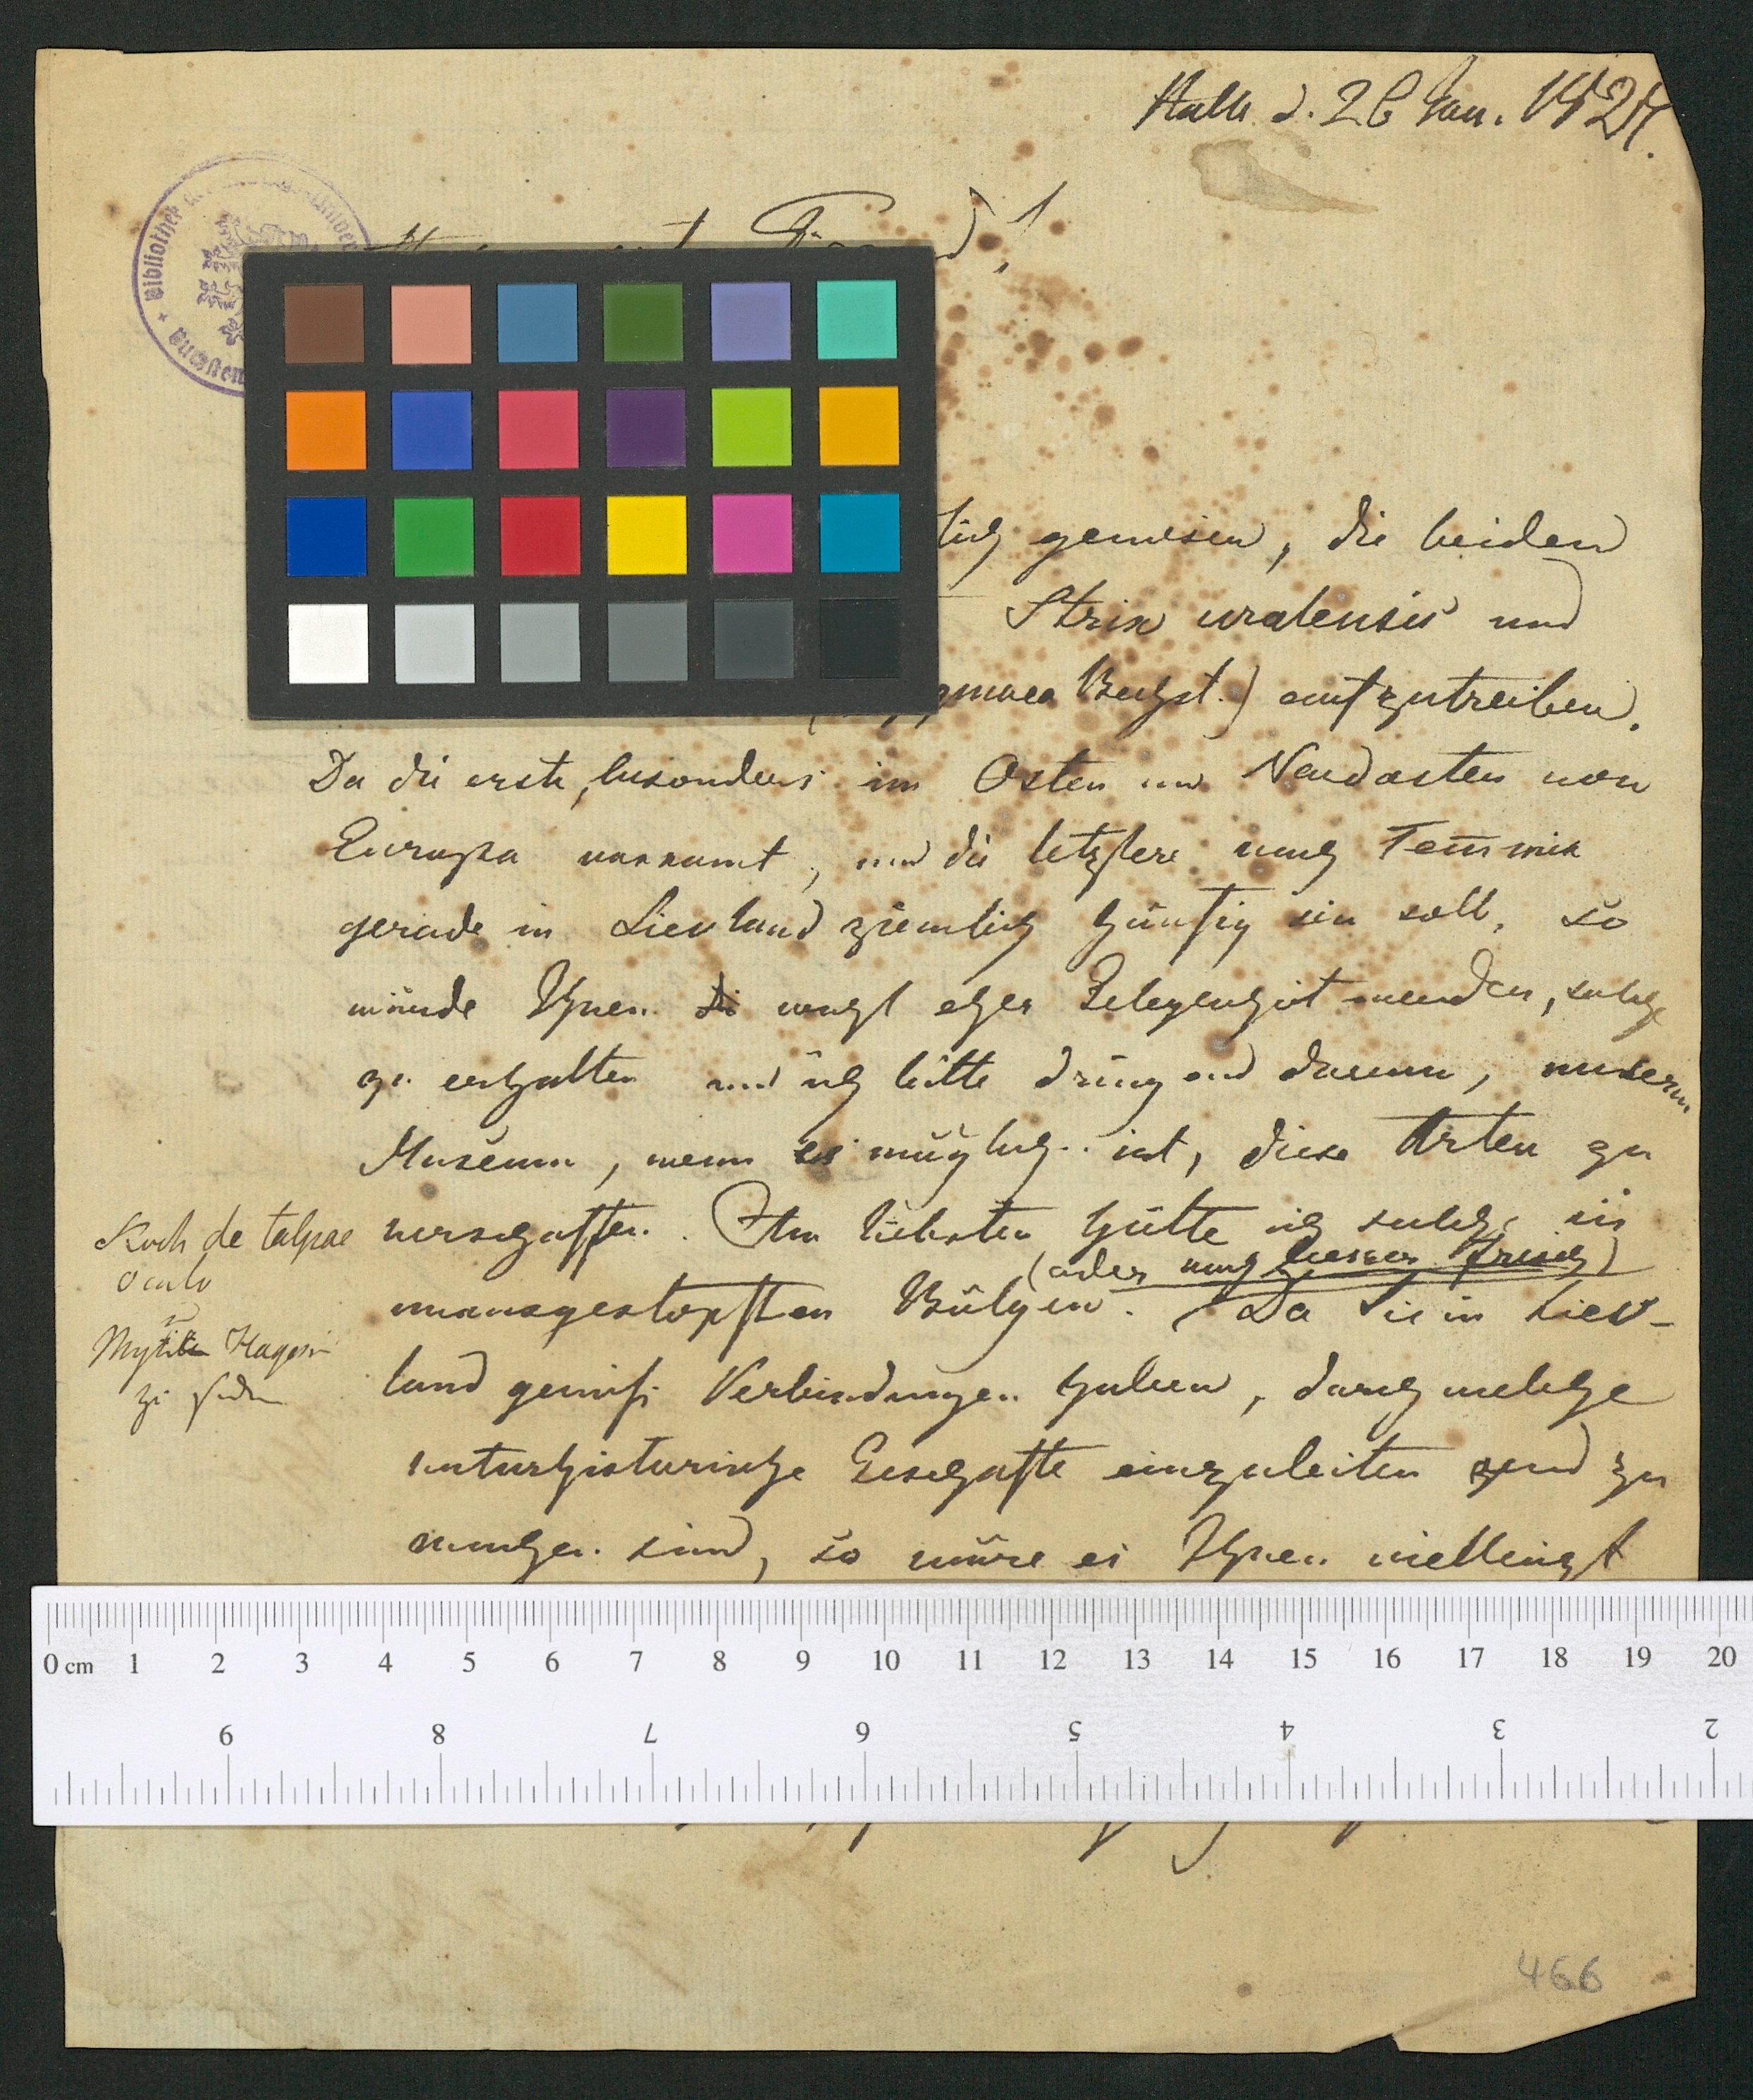 Halle d. 26 Jan. 182
Bibliothek
lich gewesen, die beiden
Strix uralensis und
Bechst.) aufzutreiben.
Da die erste, besonders im Osten und Nordosten von
Europa vorkomt, und die letztere nach Tem̄mink
gerade in Lievland ziemlich häufig sein soll, so
würde Ihnen wohl eher Gelegenheit werden, solche
zu erhalten und ich bitte dringend darum, unserm
Museum, wenn es möglich ist, diese Arten zu
verschaffen. Am liebsten hätte ich solche in
(oder noch besser frisch)
unausgestopften Bälgen. Da Sie in Liev-
land gewiß Verbindungen haben, durch welche
naturhistorische Geschäfte einzuleiten und zu
machen sind, so wäre es Ihnen vielleicht
Koch de talpae
oculo
Hageni
zu
0 cm 1 2 3 4 5 6 7 8 9 10 11 12 13 14 15 16 17 18 19 20
9 8 7 6 5 4 3 2
466